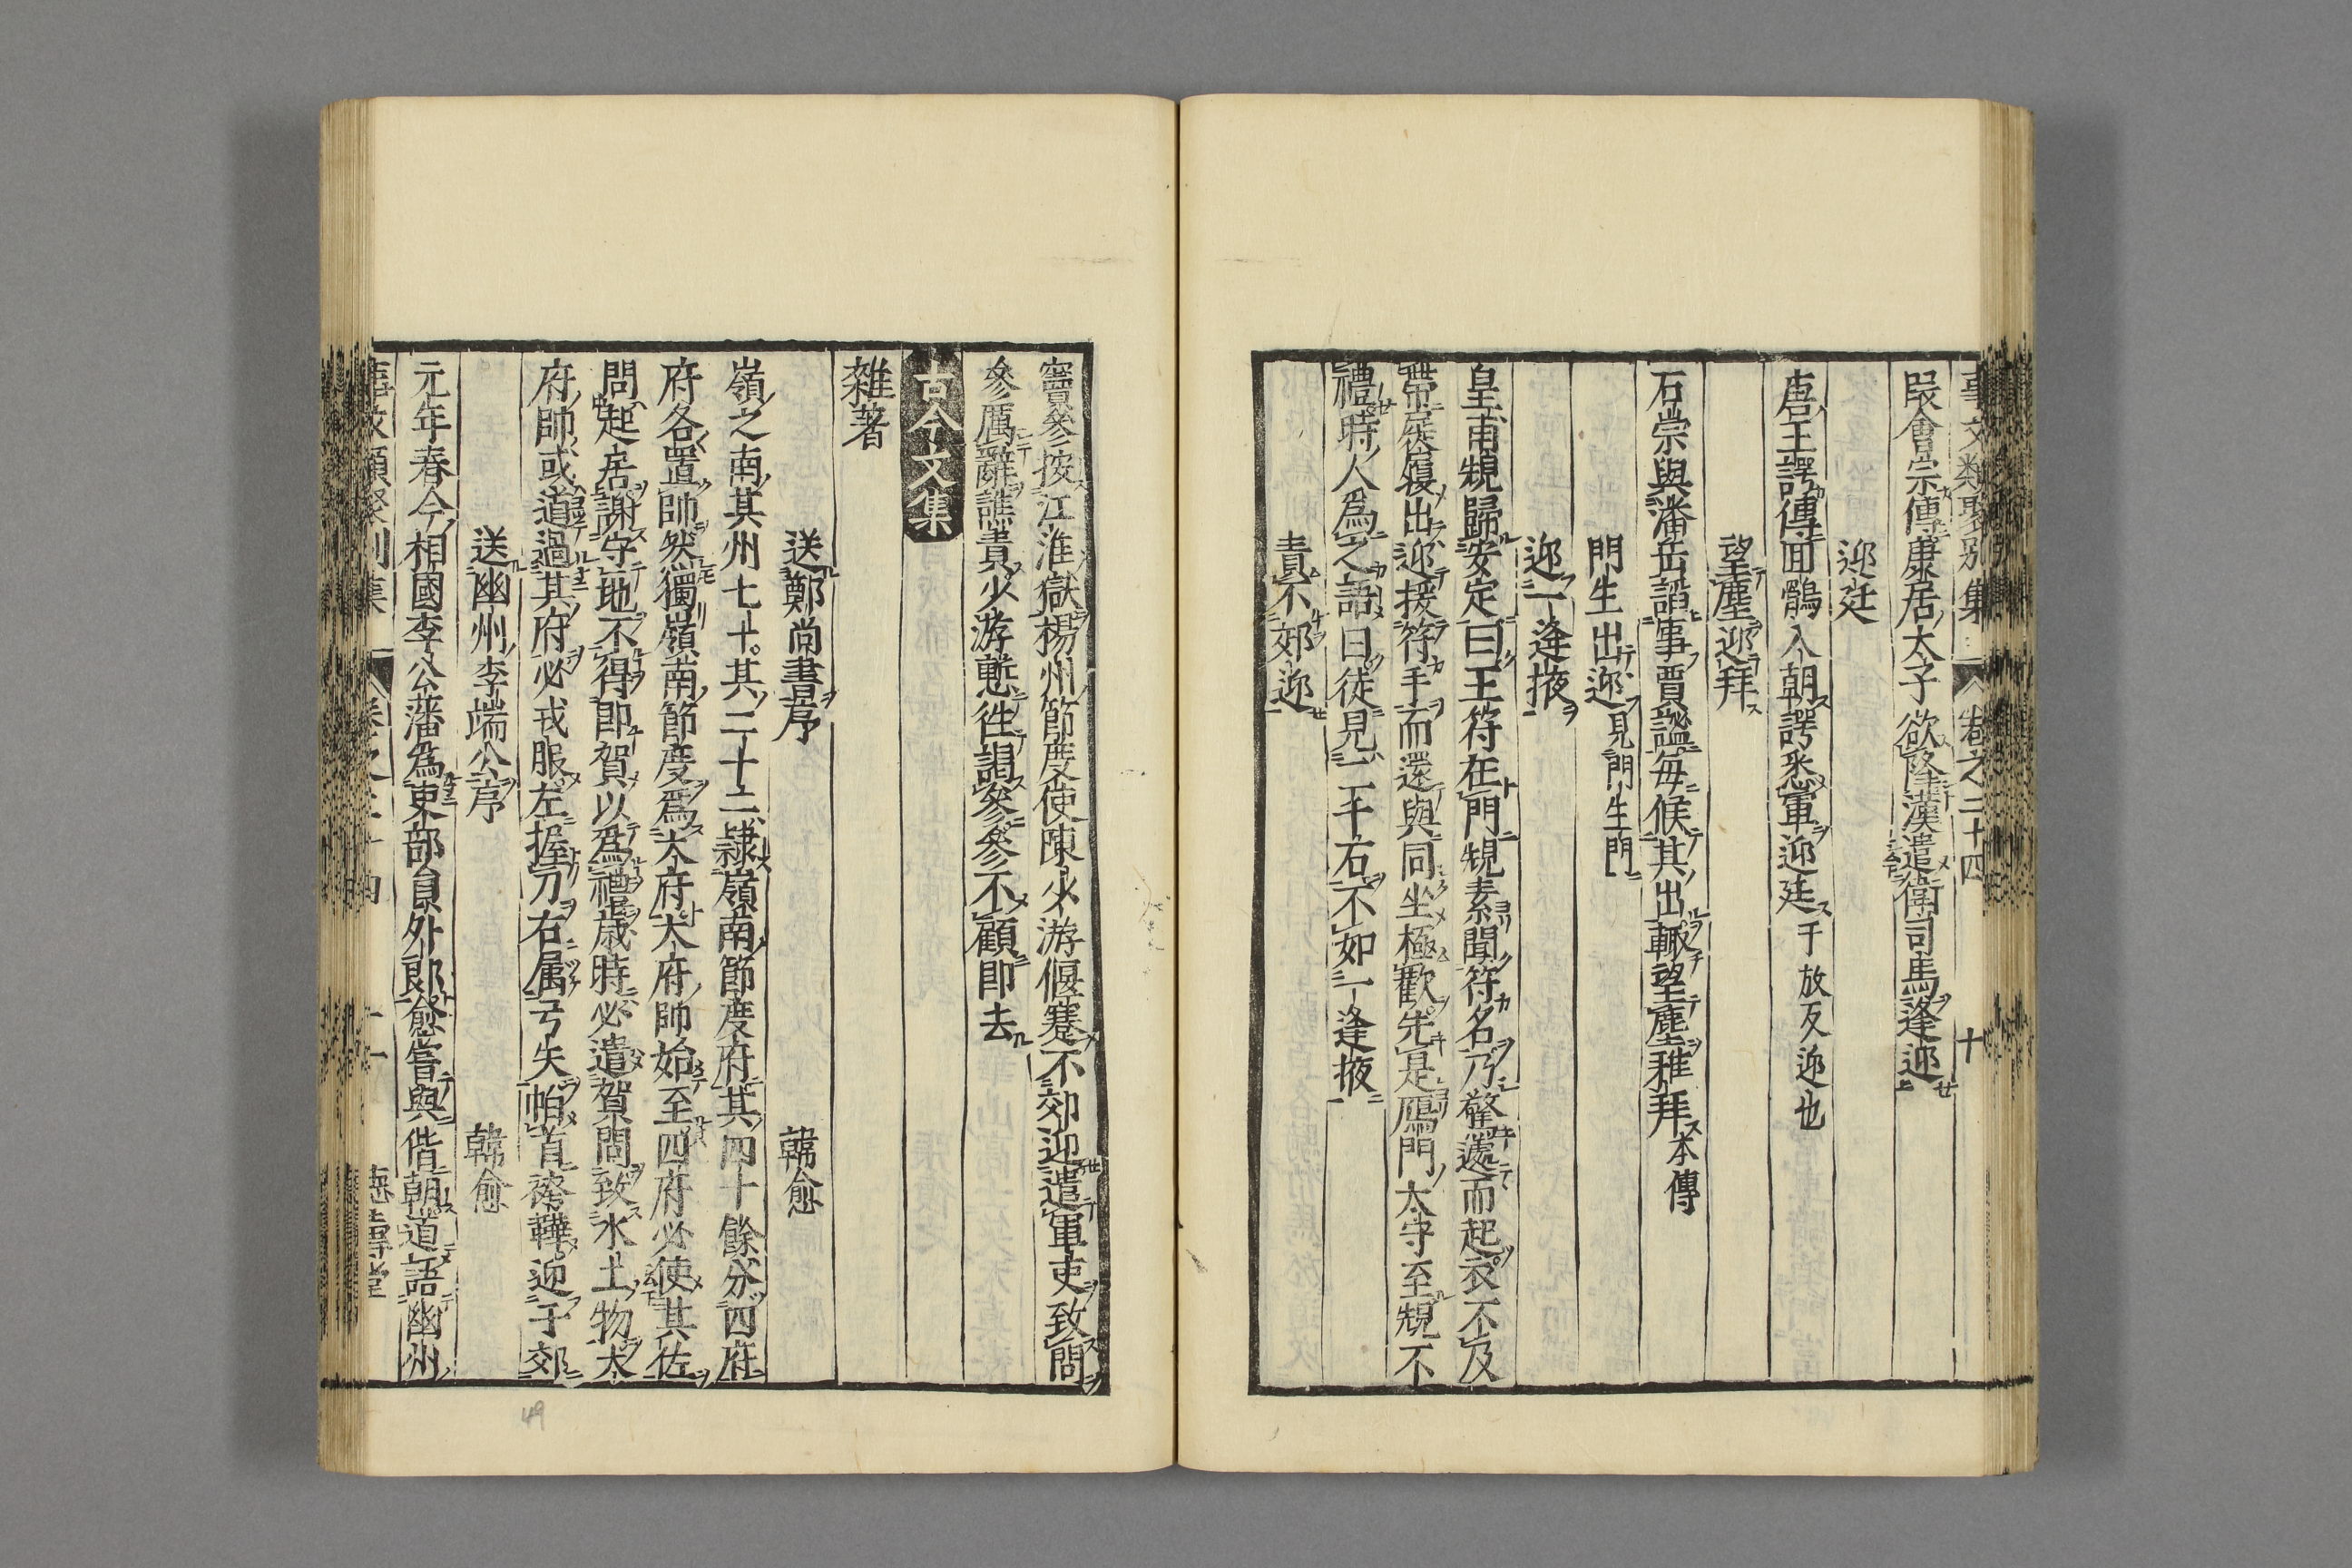 事文類聚別集 卷之二十四 十
段會宗傳康居太子欲降漢遣衛司馬逢迎
迎廷
唐王諤傳面鶻入朝諤悉軍迎廷于放反迎也
望塵迎拜
石崇與潘岳諂事賈謐每候其出輒望塵稚拜本傳
門生出迎見門生門
迎一逢掖
皇甫規歸安定曰王符在門規素聞符名乃驚遽而起衣不及
帶屣履出迎援符手而還與同坐極歡先是鴈門太守至規不
禮時人為之語曰徒見二千石不如一逢掖
責不郊迎
竇參按江淮獄楊州節度使陳少游偃蹇不郊迎遣軍吏致問
參厲辭譙責少游慙徃謁參參不顧即去
古今文集
雜著
送鄭尚書序 韓愈
嶺之南其州七十其二十二隷嶺南節度府其四十餘分四府
府各置帥然獨嶺南節度爲大府大府帥始至四府必使其佐
問起居謝守地不得即賀以爲禮歳時必遣賀問致水土物大
府帥或道過其府必戎服左握刀右属弓矢帕首袴鞾迎于郊
送幽州李端公序 韓愈
元年春今相國李公藩為吏部員外郎愈嘗與偕朝道語幽州
事文類聚別集 卷之二十四 十一 德壽堂